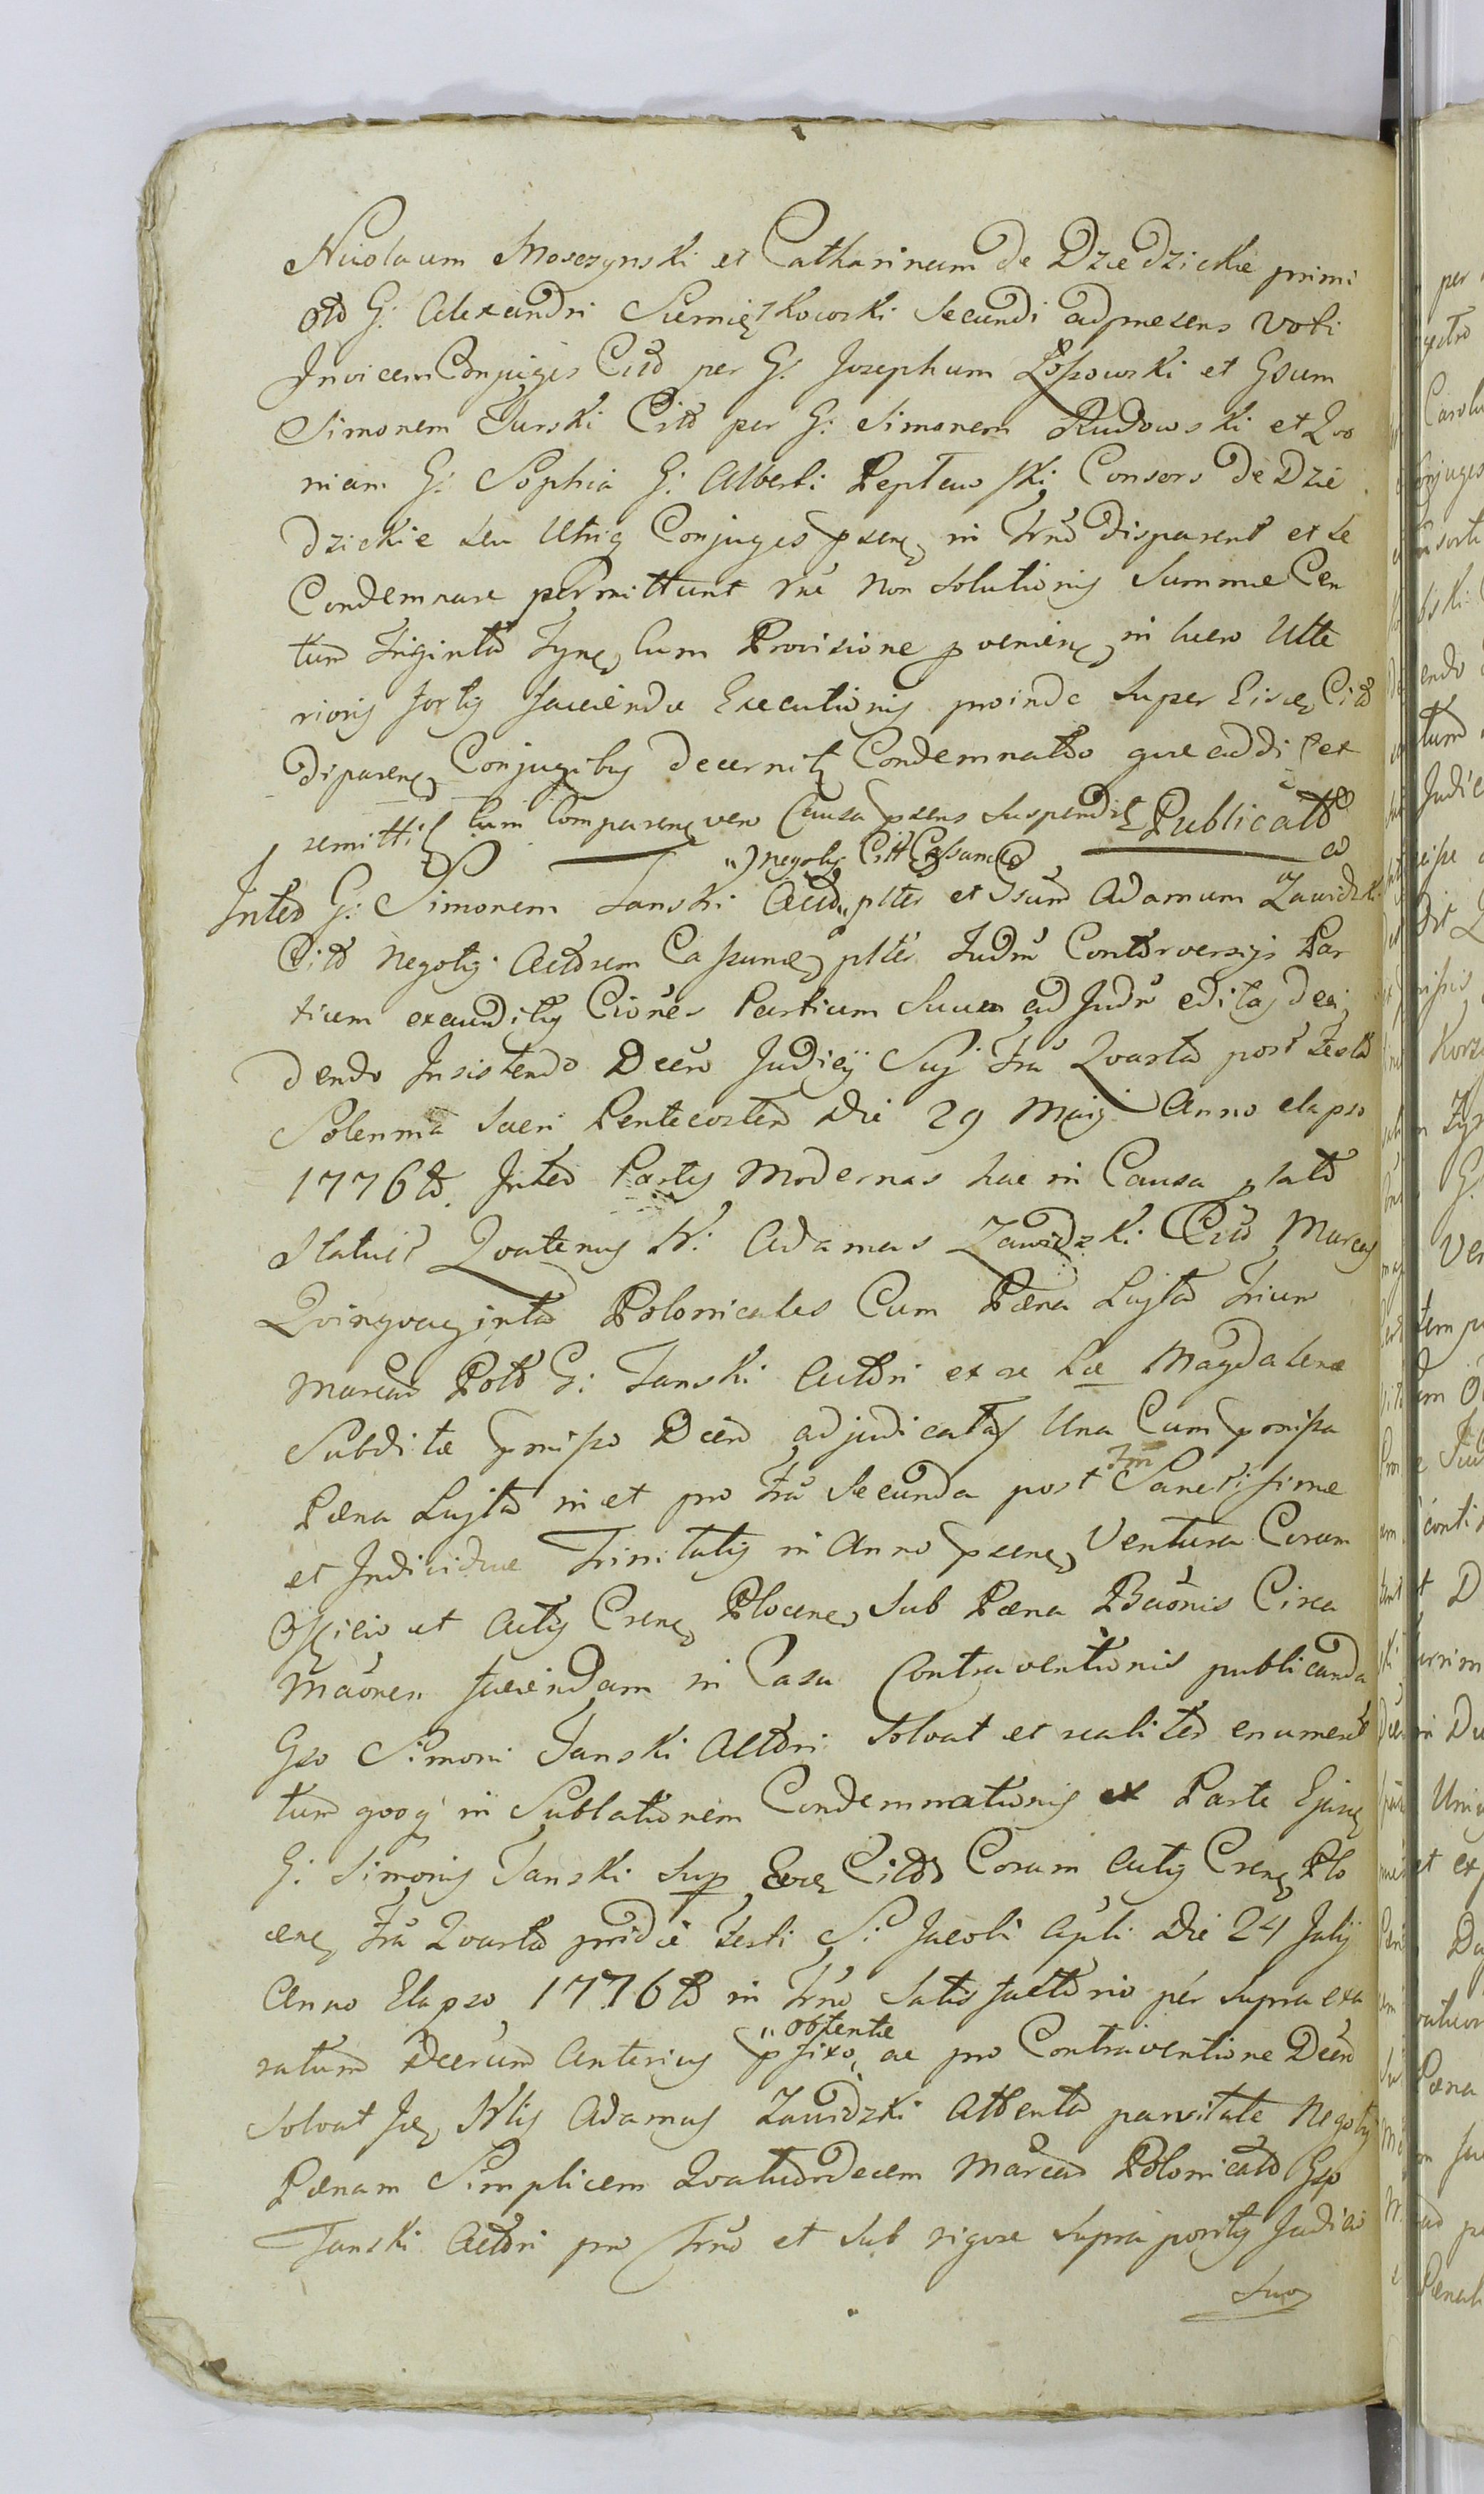 Nicolaum Moszzynski et Catharinam de Dziedzickie primi
olo G: Alexandri Siemiątkowski Secundi adpraesens Voti
Invicem Conjuges Citd per G: Josephum Łossowski et Gsum
Simonem Turski Citd per G: Simonem Rudowski et Qvo
niam G: Sophia G: Alberti Peptowski Consors de Dzie
dzickie seu Utriq Conjuges psene in Trno disparent et se
Condemnare permittunt rne non Solutionis Summae Cen
tum Triginta Tynf cum Provisione pvenien in luen Ulte
rioris fortis faciendae Executionis proinde super Eisde Citd
disparen Conjugibus decernit Condemnatio quae addi et
remitti cum Comparen vero Causa psens Suspendit Publicatd
") negoty Citt Cassande
Inter G: Simonem Janski Actd " pltes et Gsum Adamum Zawidzki
Citd Negotij Actorem Cassande pltes Judm Controversijs Par
tium exauditis Ciones Partium Suum ad Judm editas deci
dendo Insistendo Decro Judicij Suj fra Qvarta post festa
Solenna Sacri Pentecosten die 29 Maij Anno elapso
1776to Inter Partes Modernas hac in Causa plato
Statuit Qvatenus N: Adamus Zawidzki Citd Marcas
Qvinqvaginta Polonicales Cum Paena Lujta Trium
Marcar Pold G: Janski Actori ex re Lae Magdalenae
Subditae pmisso Decro adjudicatas Una Cum pmissa
Paena Lujta in et pro fra Secunda post fm Sanctissimae
et Individuae Trinitatis in Anno psene Ventura Coram
Officio et Actis Crene Plocene sub Paena Baonis Circa
Maonem faciendam in Casu Contraventionis publicanda
Gso Simoni Janski Actori Solvat et realiter enumeret
tum qooq in Sublationem Condemnationis ex Parte Ejusde
G: Simonis Janski Sup Eode Citto Coram Actis Crene Plo
cene fra Qvarta pridie festi S: Jacobi Apli die 24 Julij
Anno Elapso 1776to in Trno Satisfactorio per Supra exa
" obtentae
ratum Decrum Anterius pfixo " ac pro Contraventione Decro
Solvat Ide Nlis Adamus Zawidzki Attenta parvitate Negotij
Paenam Simplicem Qvatuordecem Marcar Polonicald Gso
Janski Actori pro Trno et sub rigore Supra positis Judicio
Suo